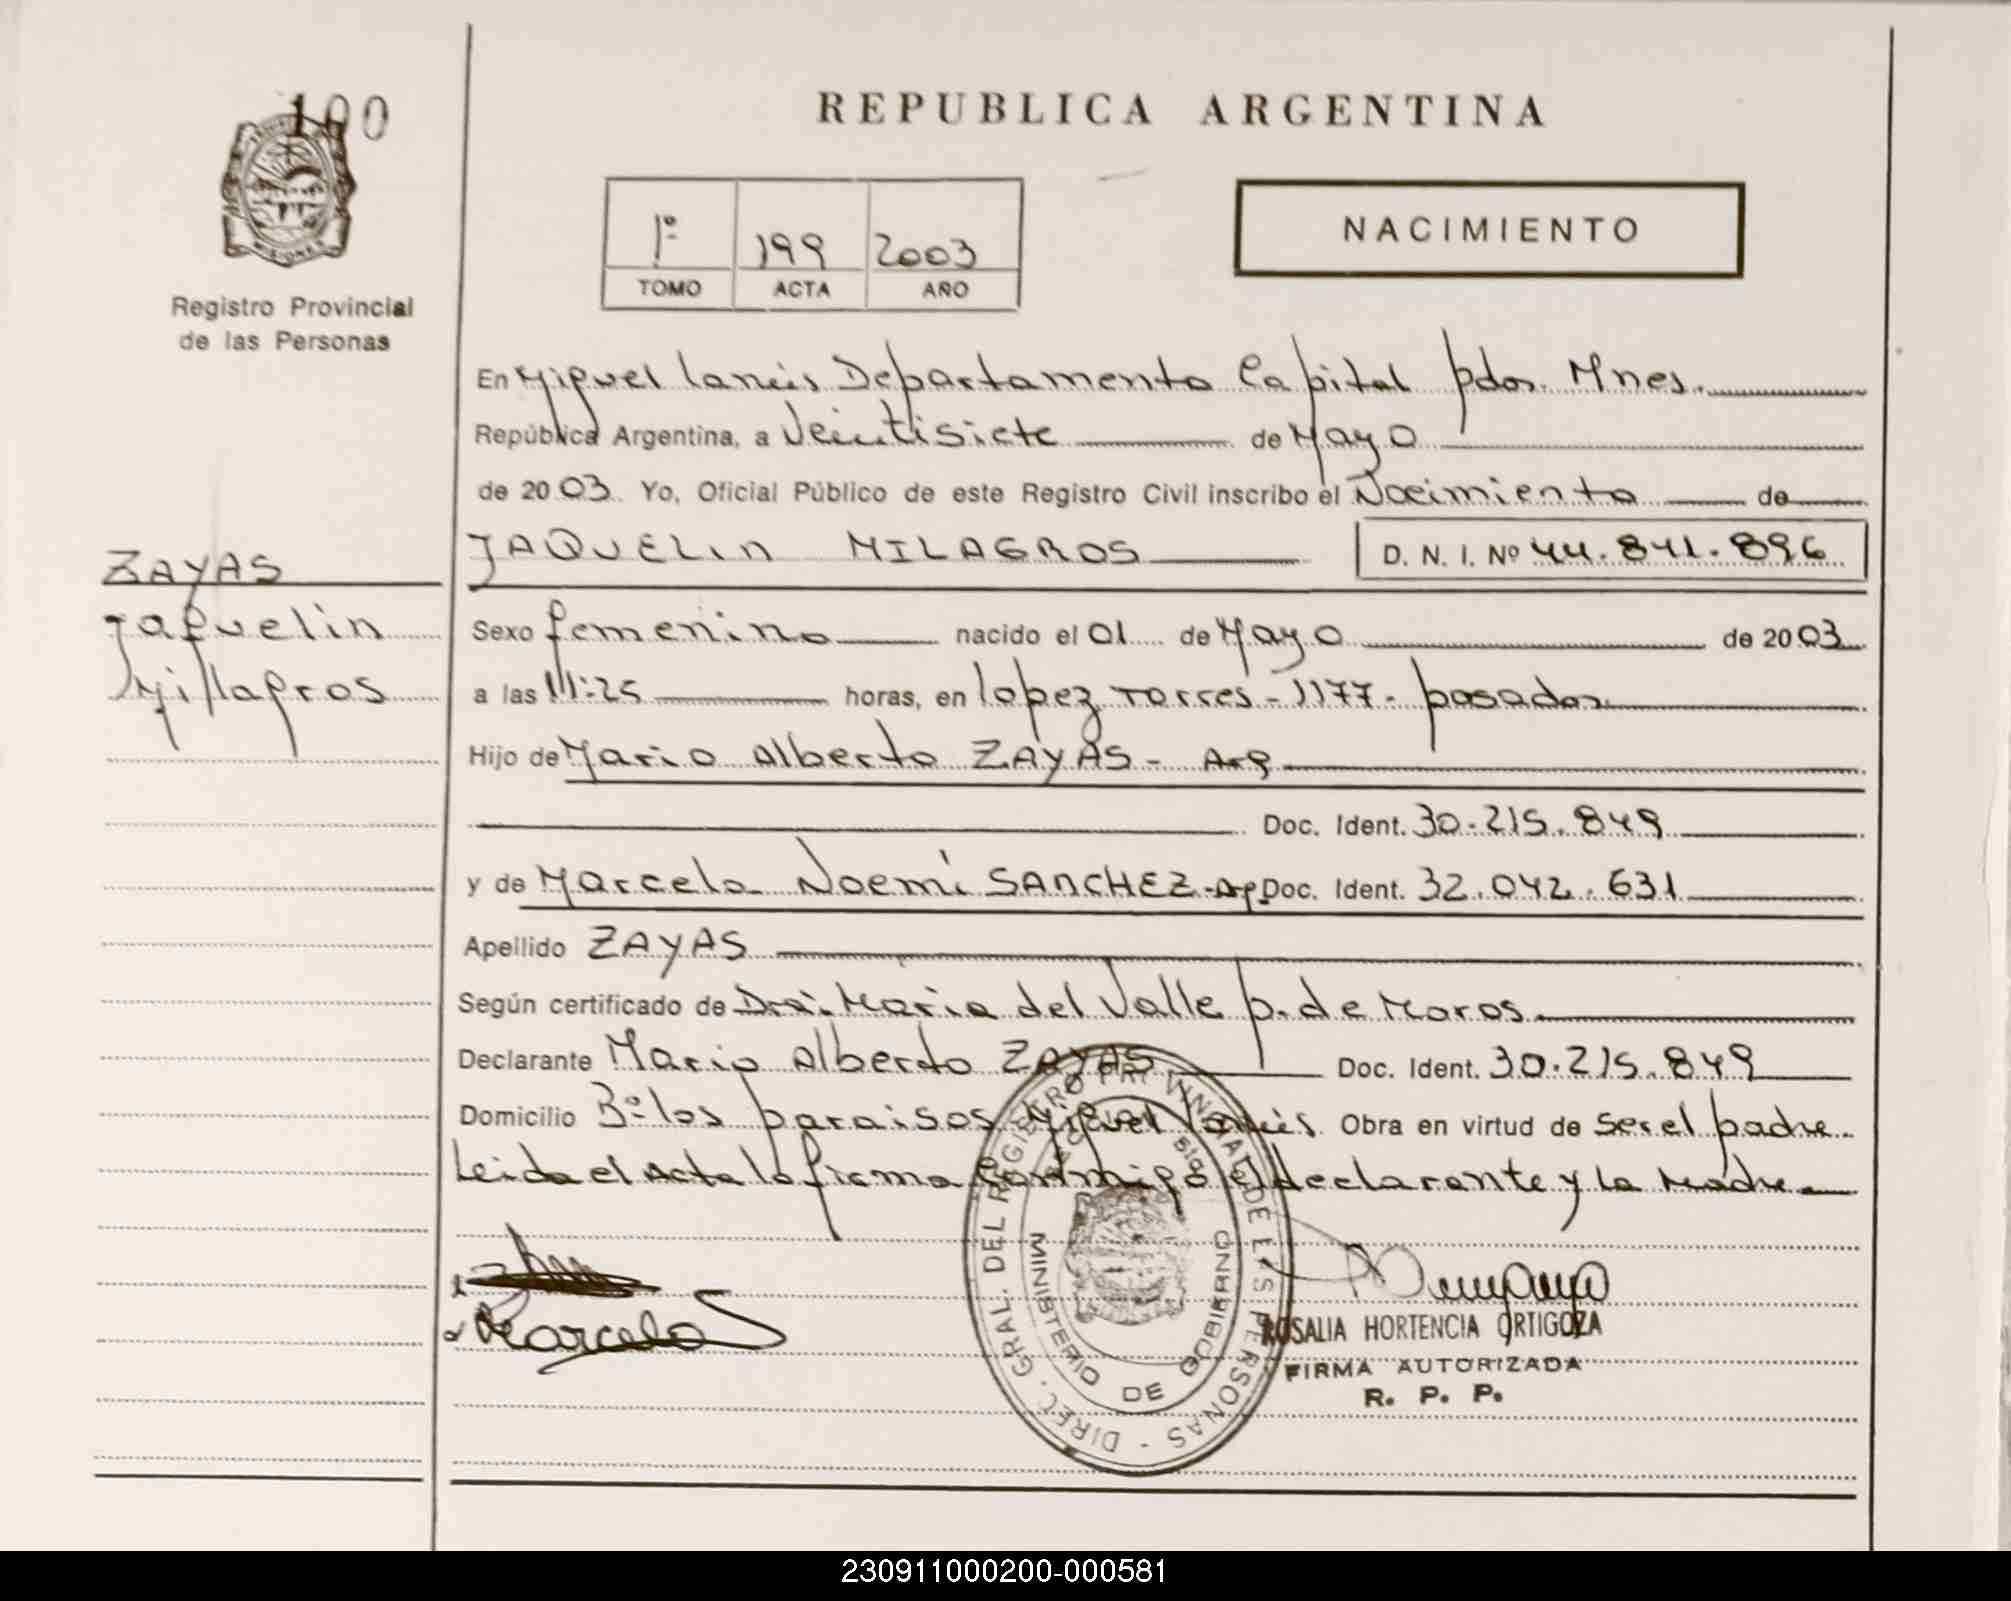 100
REPUBLICA ARGENTINA
MISIONES
Registro Provincial
de las Personas
1º 199 2003
TOMO ACTA AÑO
NACIMIENTO
En Miguel Lanús Departamento Capital pdas. Mnes.
República Argentina, a Veintisiete de Mayo
de 2003. Yo, Oficial Público de este Registro Civil inscribo el Nacimiento de
JAQUELIN MILAGROS D. N. I. Nº 44.841.896
ZAYAS
Jaquelin
Milagros
Sexo femenino nacido el 01 de Mayo de 2003
a las 11:25 horas, en Lopez Torres - 1177 - posadas
Hijo de Mario Alberto ZAYAS - Arg
Doc. Ident. 30.215.849
y de Marcela Noemí SANCHEZ - Ag Doc. Ident. 32.042.631
Apellido ZAYAS
Según certificado de Dra. Maria del Valle p. de Moros
Declarante Mario Alberto ZAYAS Doc. Ident. 30.215.849
Domicilio Bº los paraisos Miguel Lanús. Obra en virtud de ser el padre
Leida el Acta la firma conmigo el declarante y la Madre
Marcela S
DIREC. GRAL. DEL REGISTRO PROVINCIAL DE LAS PERSONAS
MINISTERIO DE GOBIERNO
ROSALIA HORTENCIA ORTIGOZA
FIRMA AUTORIZADA
R. P. P.
230911000200-000581